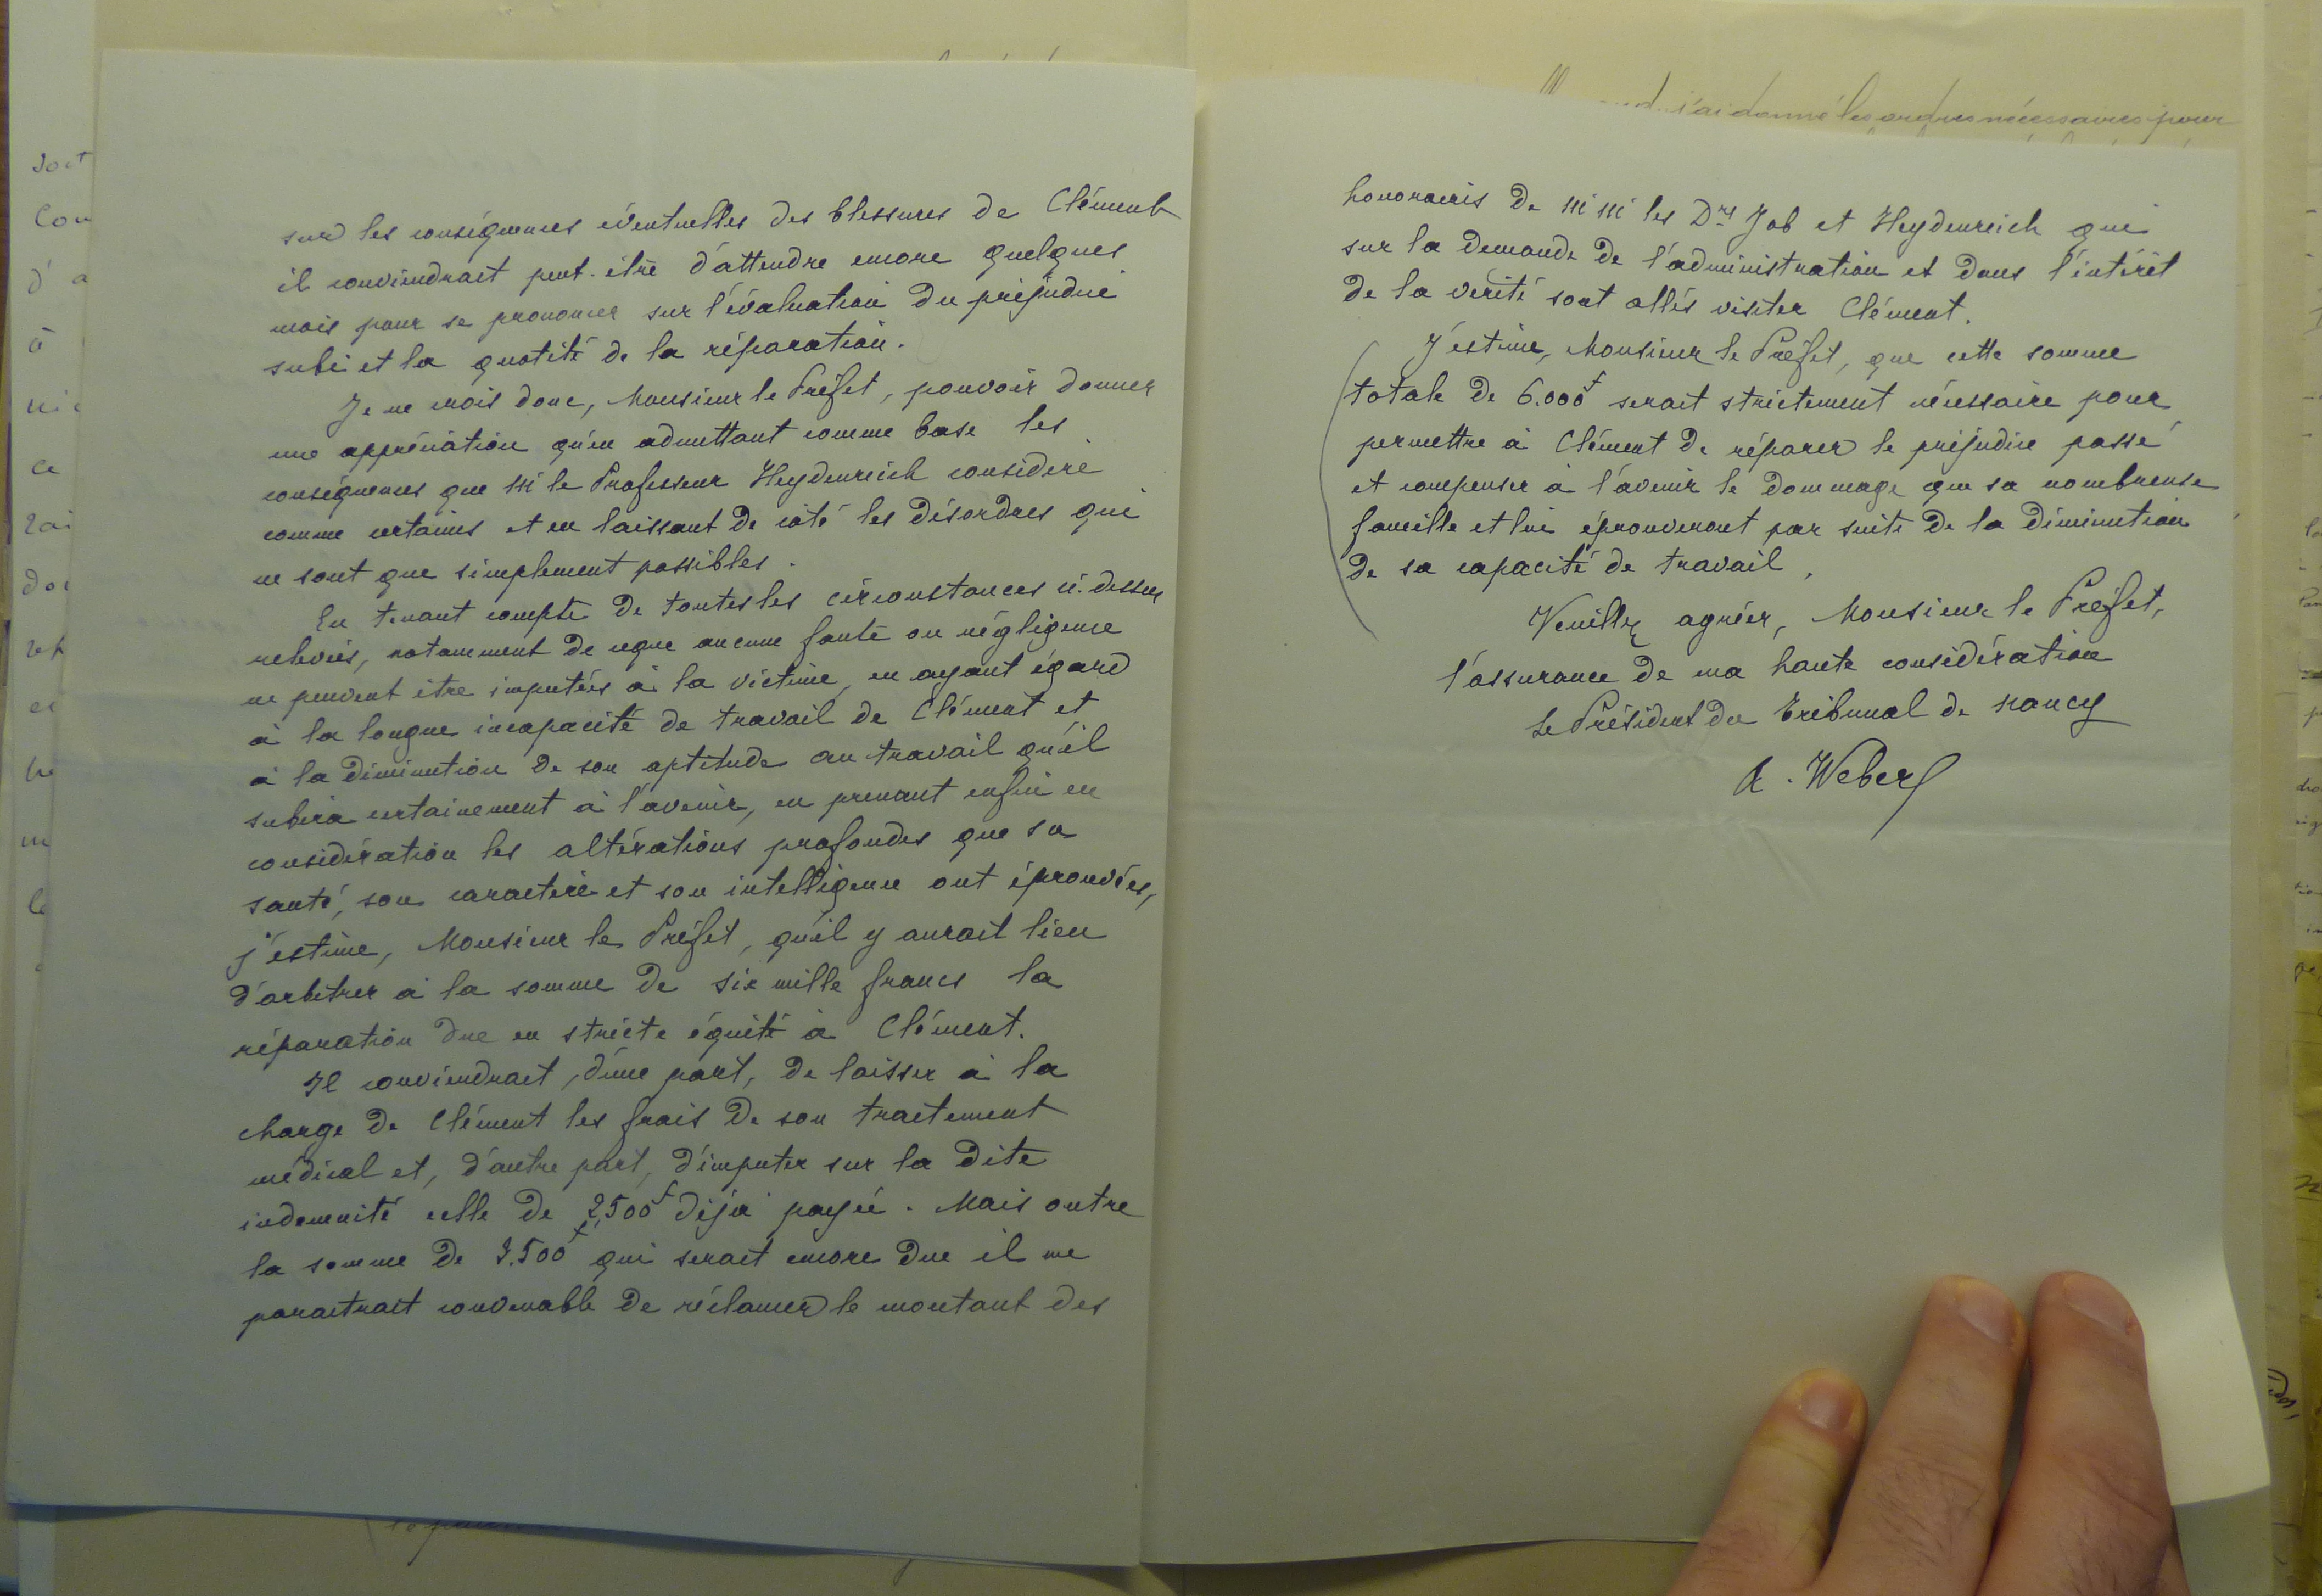 sur les conséquences éventuelles des blessures de Clément
il conviendrait peut-être d'attendre encore quelques
mois pour se prononcer sur l'évaluation du préjudice
subi et la quotité de la réparation.
Je ne crois donc, Monsieur le Préfet, pouvoir donner
une appréciation qu'en admettant comme base les
conséquences que M le Professeur Heydenreich considère
comme certaines et en laissant de côté les désordres qui
ne sont que simplement possibles.
En tenant compte de toutes les circonstances ci-dessus
relevées, notamment de ce que aucune faute ou négligence
ne peuvent être imputées à la victime, en ayant égard
à la longue incapacité de travail de Clément et
à la diminution de son aptitude au travail qu'il
subira certainement à l'avenir, en prenant enfin en
considération les altérations profondes que sa
santé, son caractère et son intelligence ont éprouvées,
j'estime, Monsieur le Préfet, qu'il y aurait lieu
d'arbitrer à la somme de six mille francs la
réparation due en stricte équité à Clément.
Il conviendrait, d'une part, de laisser à la
charge de Clément les frais de son traitement
médical et, d'autre part, d'imputer sur la dite
indemnité celle de 2,500f déjà payée. Mais outre
la somme de 3.500f qui serait encore due il me
paraitrait convenable de réclamer le montant des
j'ai donné les ordres nécessaires pour
honoraires de MM les Drs Job et Heydenreich qui
sur la demande de l'administration et dans l'intérêt
de la vérité sont allés visiter Clément.
J'estime, Monsieur le Préfet, que cette somme
totale de 6.000f serait strictement nécessaire pour
permettre à Clément de réparer le préjudice passé
et compenser à l'avenir le dommage que sa nombreuse
famille et lui éprouveront par suite de la diminution
de sa capacité de travail.
Veuillez agréer, Monsieur le Préfet,
l'assurance de ma haute considération
Le Président du Tribunal de Nancy
A. Weber